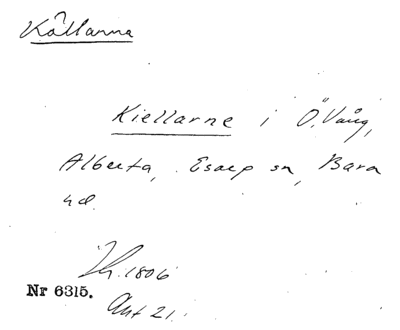 Källarna
Kiellarne i Ö. Vång,
Alberta, Esarp sn, Bara
hd.
1806
Nr 6315.
Akt 21.